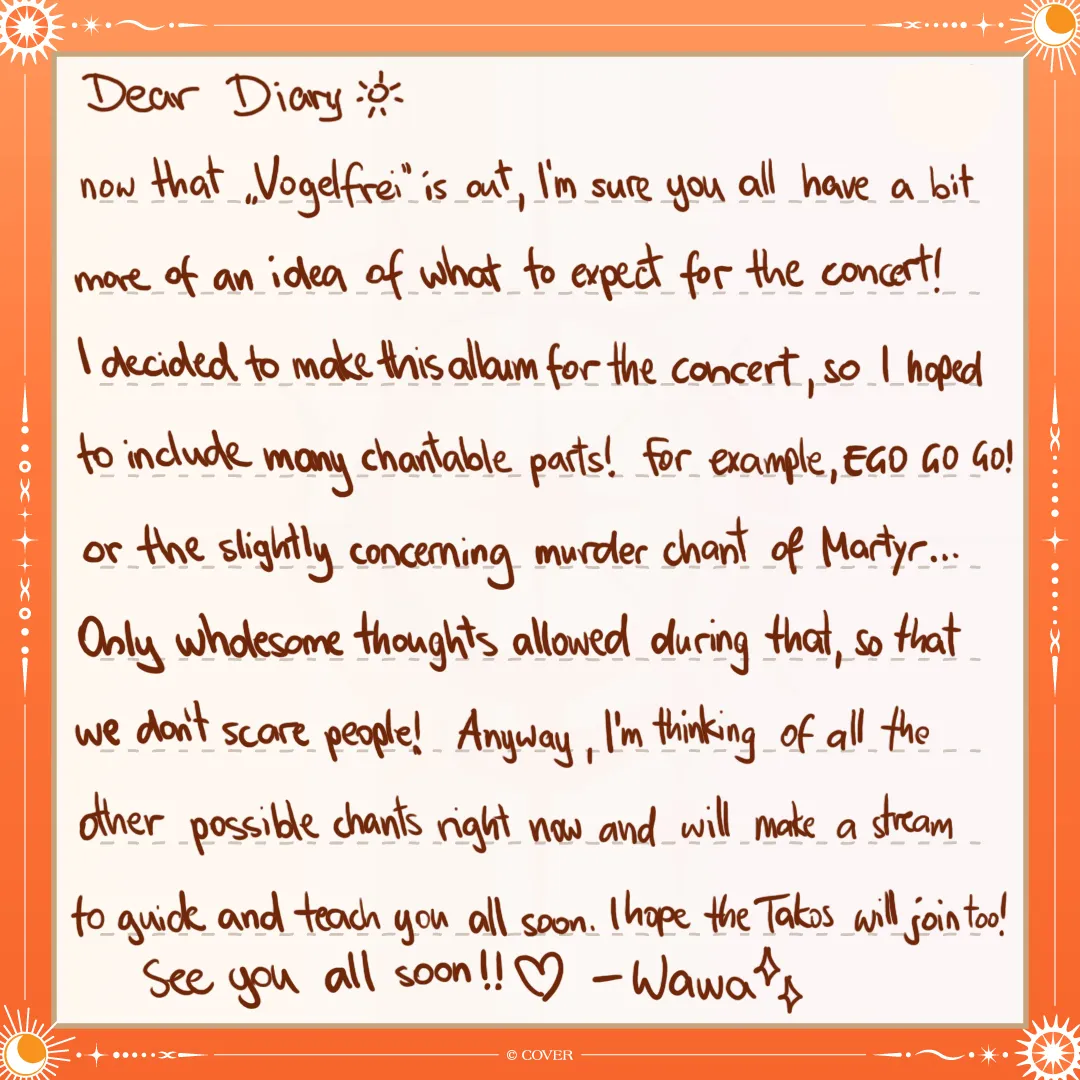 Dear Diary
now that „Vogelfrei" is out, I'm sure you all have a bit
more of an idea of what to expect for the concert!
I decided to make this album for the concert, so I hoped
to include many chantable parts! For example, EGO GO GO!
or the slightly concerning murder chant of Martyr...
Only wholesome thoughts allowed during that, so that
we don't scare people! Anyway, I'm thinking of all the
other possible chants right now and will make a stream
to guide and teach you all soon. I hope the Takos will join too!
See you all soon!! ♡ – Wawa
© COVER